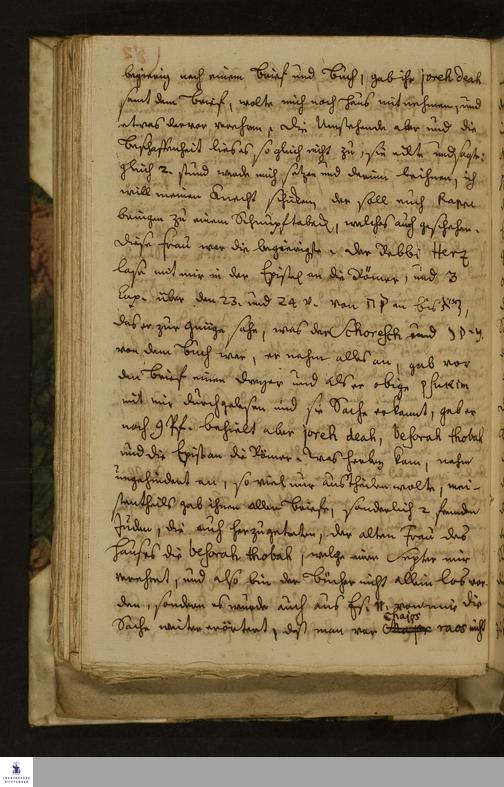 begierig nach einem Brief und Buch, gab ihr joreh deah
samt dem Brief, wolte mich nach Haus mit nehmen, und
etwas davor verehren. Die Umstehende aber und die
Beschaffenheit ließ es so gleich nicht zu, sie eilte und sagte:
2 stund werde mich setzen und darin leihnen, ich
will meinen Knecht schicken, der soll euch
bringen zu einem Schnupftaback, welches auch geschehen.
Diese Frau war die begierigste. Der Rebbi Herz
lase mit mir in der Epistel an die Römer, und 3
Cap. über den 23. und 24 v. von an bis
das er zur Gnüge sahe, was der Schoresch und
von dem Buch war, er nahm alles an, gab vor
den Brief einen Dreyer und als er obige psukim
mit mir durchgelesen und die Sache erkannt, gab er
noch 9 Pf. behielt aber joreh deah, besorah thobah
und die Epist an die Römer. Was herbey kam, nahm
ungehindert an, so viel nur austheilen wolte, mei-
stentheils gab ihnen allen Briefe, sonderlich 2 fremden
Juden, die auch herzugetreten, der alten Frau des
Hauses die besorah thobah, welche einen mir
verehret, und also bin der Bücher nicht allein los wor-
den, sondern es wurde auch aus Es. von mir die
Sache weiter erörtert, daß man vor Chajos raos nicht